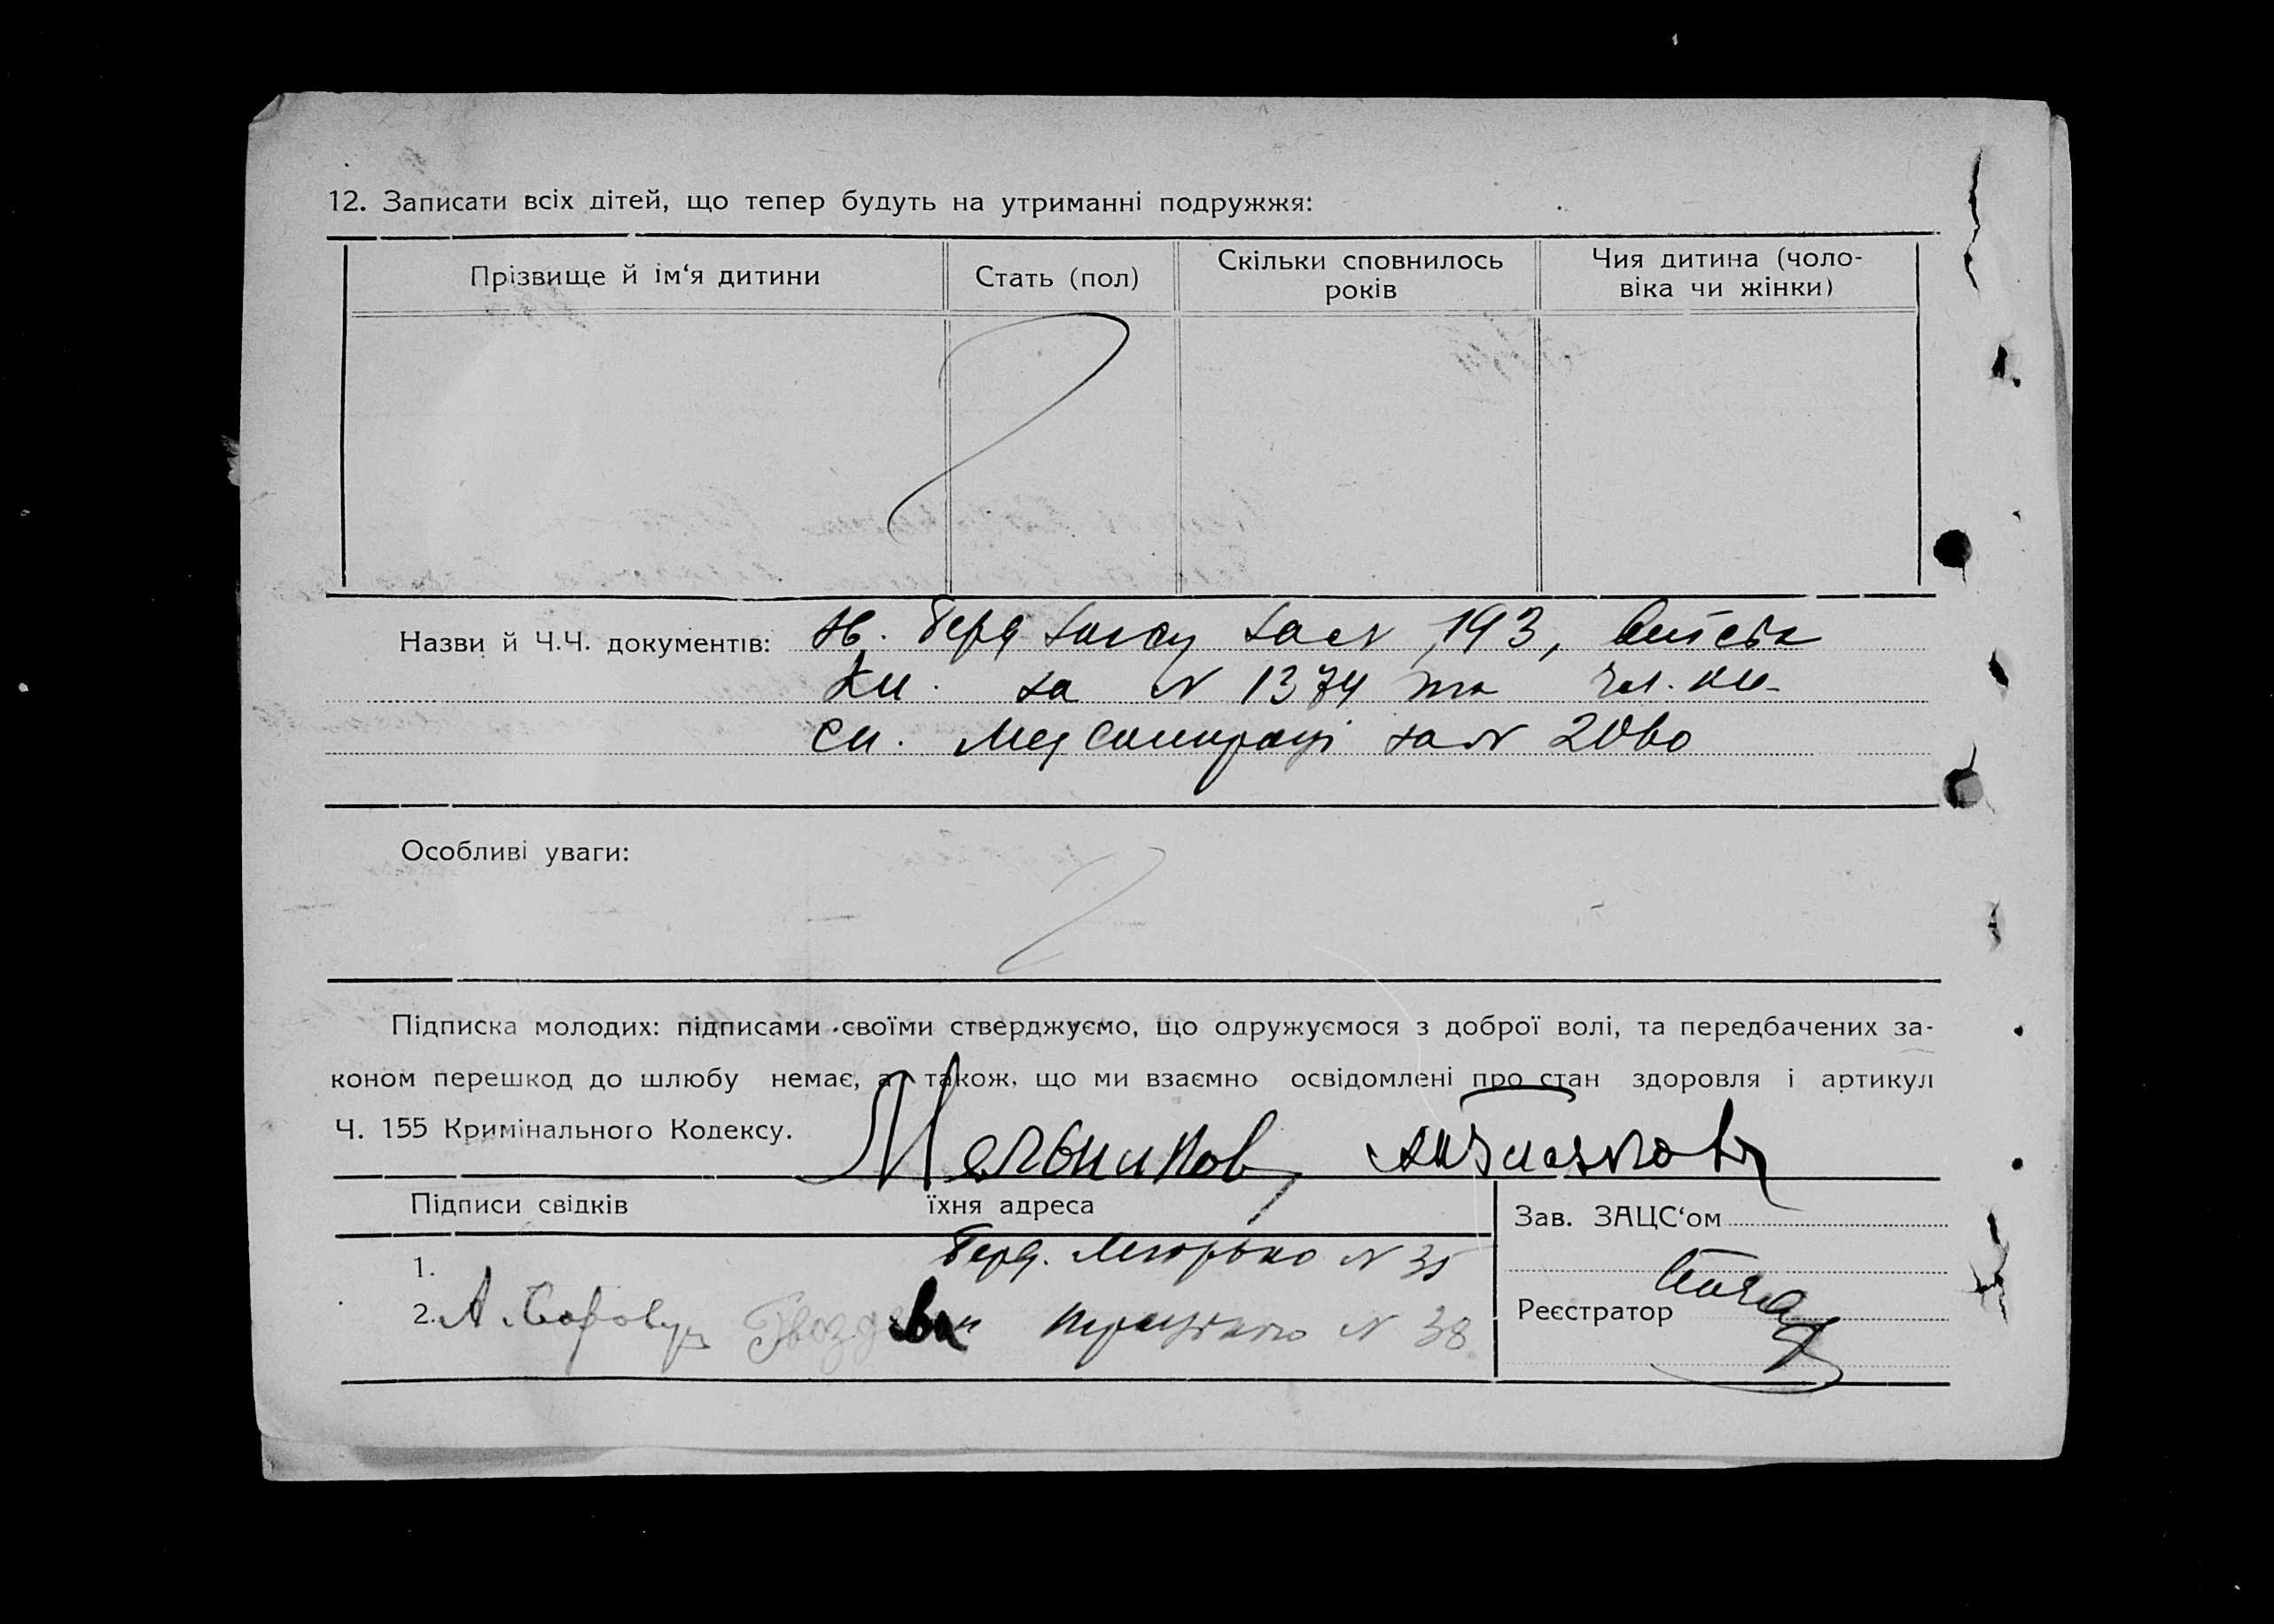 12. Записати всіх дітей, що тепер будуть на утриманні подружжя:
Прізвище й ім‘я дитини
Стать (пол)
Скільки сповнилось
років
Чия дитина (чоло-
віка чи жінки)
Назви й Ч.Ч. документів: 193,
кн. за N 1374 та чл. кн.
сп. за N
Особливі уваги:
Підписка молодих: підписами своїми стверджуємо, що одружуємося з доброї волі, та передбачених за-
коном перешкод до шлюбу немає, а також, що ми взаємно освідомлені про стан здоровля і артикул
Ч. 155 Кримінального Кодексу. Мельников
Підписи свідків
їхня адреса
Зав. ЗАЦС‘ом
1. Берд. N 35
2. А. N 38
Реєстратор